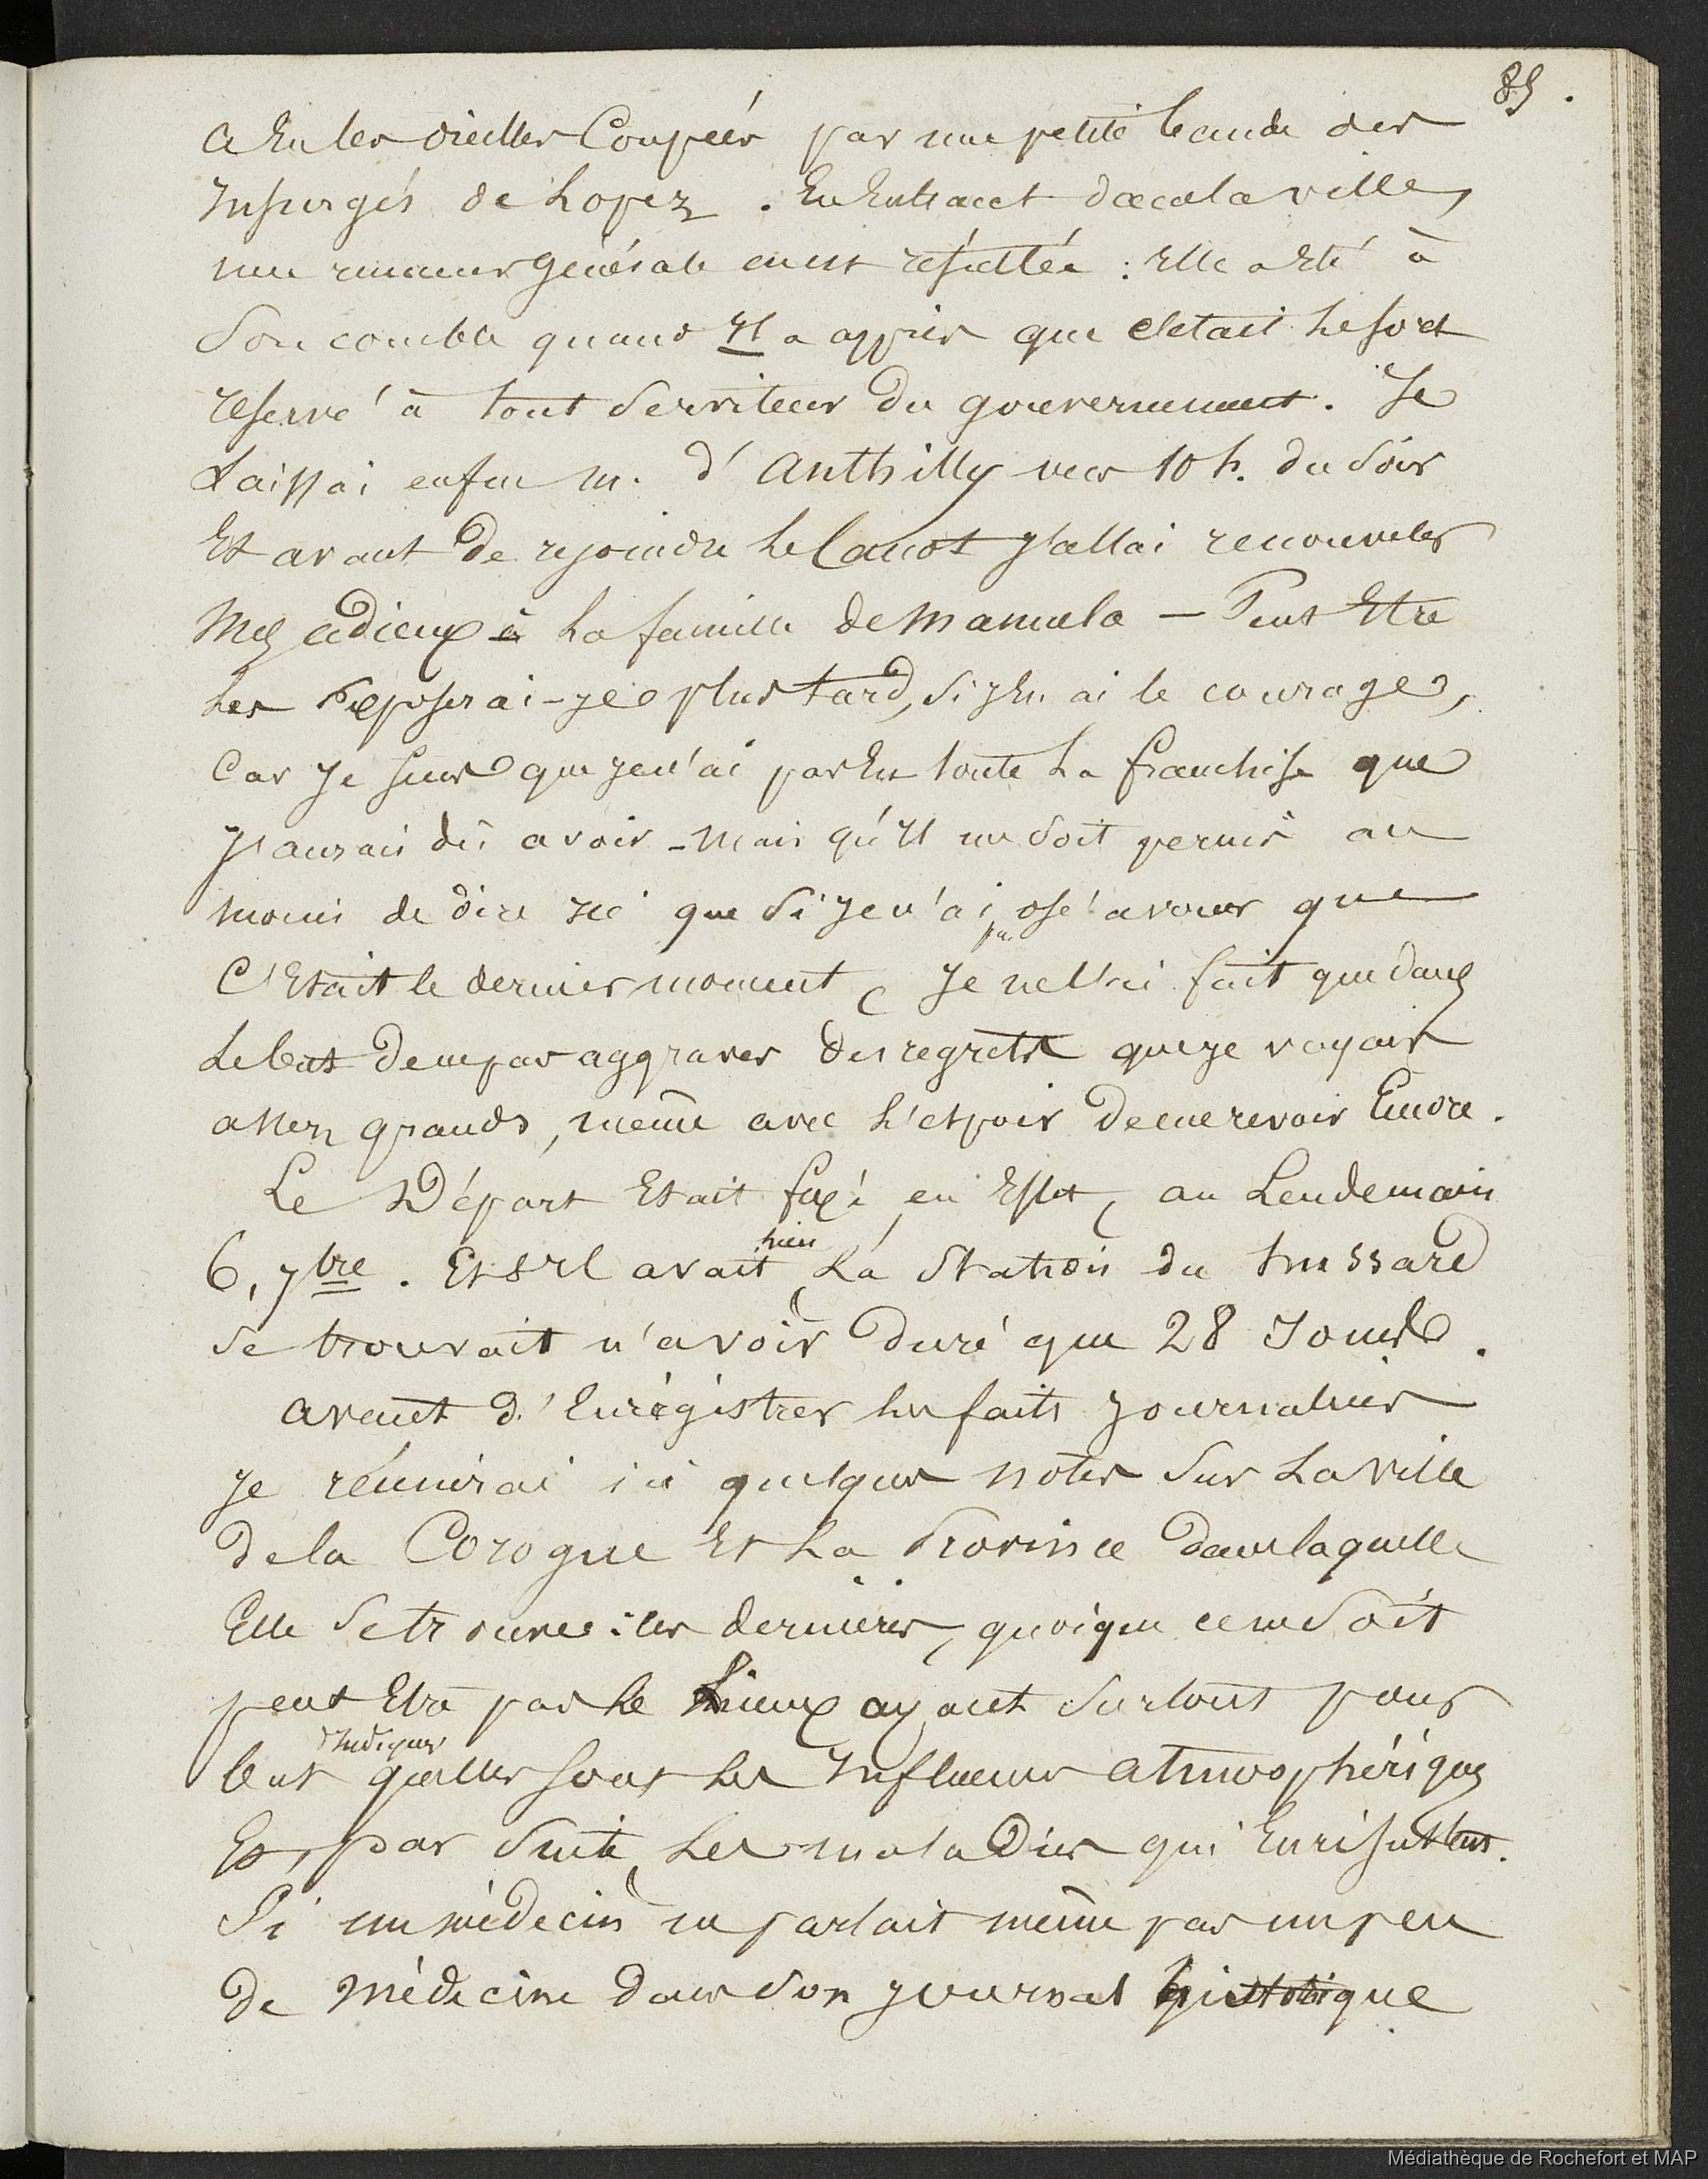 85.
a Eu les oreilles Coupées par une petite bande des
Insurgés de Lopez. En Entrant dans la ville,
une rumeur générale en est résultée : Elle a Eté à
Son comble quand Il a appris que c'était Le sort
réservé à tout Serviteur du gouvernement. Je
Laissai enfin M. d'Anthilly vers 10 h. du Soir
Et avant De rejoindre Le Canot j'allai renouveler
Mes adieux à La famille de Manuela — Peut Etre
Les exposerai-je plus tard, Si j'En ai le courage,
Car Je sens que je n'ai pas Eu toute La franchise que
J'aurais dû avoir - Mais qu'Il me Soit permis au
moins de dire Ici que Si je n'ai pas osé avouer que
C'Etait le dernier moment, Je ne l'ai fait que dans
Le but De ne pas aggraver des regrets que je voyais
assez grands, même avec L'espoir De me revoir Encore.
Le Départ Etait fixé, en Effet, au Lendemain
6, 7bre. Et s'Il avait lieu, La Station du Hussard
Se trouvait n'avoir Duré que 28 Jours.
Avant d'Enrégistrer les faits Journaliers
Je réunirai ici quelques notes Sur La ville
De la Corogne Et La Province Dans laquelle
Elle Se trouve : les dernières, quoique ce ne Soit
peut Etre pas Le Mieux ayant Surtout pour
but d'Indiquer quelles sont Les Influences atmosphériques
Et, par Suite, Les malaDies qui En résultent.
Si un médecin ne parlait même pas un peu
De Médecine Dans Son journal historique
Médiathèque de Rochefort et MAP